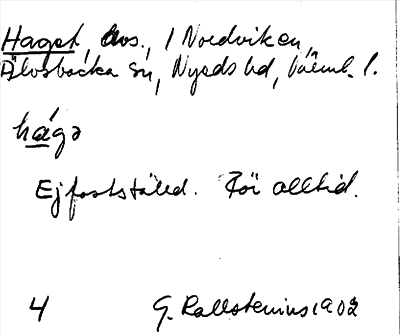 Haget, avs., 1 Nordviken,
Älvsbacka sn, Nyeds hd, Värml. l.
hágə
Ej fastställd. För alltid.
4 G. Kallstenius 1902